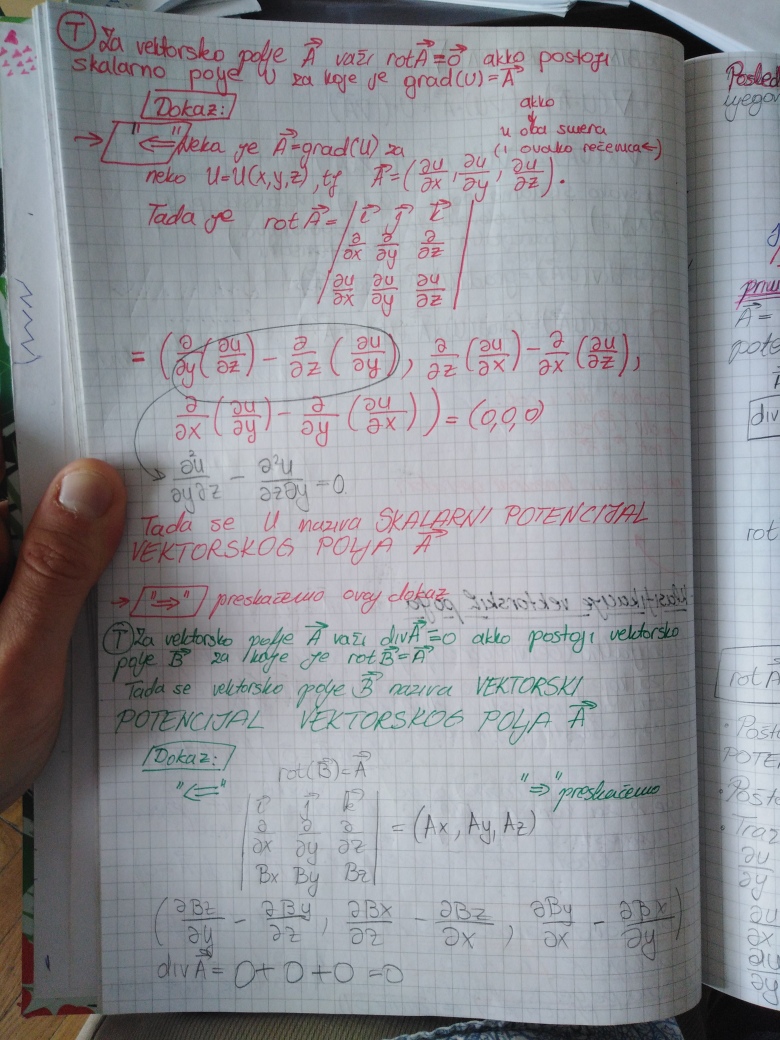 Ⓣ Za vektorsko polje A⃗ važi rotA⃗=0⃗ akko postoji
skalarno polje U za koje je grad(U)=A⃗
Dokaz:
akko
↓
u oba smera
(i ovako rečenica←)
→ "⇐" Neka je A⃗=grad(U) za
neko U=U(x,y,z), tj A⃗=(∂u/∂x, ∂u/∂y, ∂u/∂z).
Tada je rotA⃗= | i⃗ j⃗ k⃗ |
| ∂/∂x ∂/∂y ∂/∂z |
| ∂u/∂x ∂u/∂y ∂u/∂z |
= (∂/∂y(∂u/∂z) − ∂/∂z(∂u/∂y), ∂/∂z(∂u/∂x) − ∂/∂x(∂u/∂z),
∂/∂x(∂u/∂y) − ∂/∂y(∂u/∂x)) = (0,0,0)
∂²u/∂y∂z − ∂²u/∂z∂y = 0
Tada se U naziva SKALARNI POTENCIJAL
VEKTORSKOG POLJA A⃗
→ "⇒" preskačemo ovaj dokaz
Ⓣ Za vektorsko polje A⃗ važi divA⃗=0 akko postoji vektorsko
polje B⃗ za koje je rotB⃗=A⃗
Tada se vektorsko polje B⃗ naziva VEKTORSKI
POTENCIJAL VEKTORSKOG POLJA A⃗
Dokaz:
"⇐" rot(B⃗)=A⃗ "⇒" preskačemo
| i⃗ j⃗ k⃗ |
| ∂/∂x ∂/∂y ∂/∂z | = (Ax, Ay, Az)
| Bx By Bz |
(∂Bz/∂y − ∂By/∂z, ∂Bx/∂z − ∂Bz/∂x, ∂By/∂x − ∂Bx/∂y)
divA⃗ = 0 + 0 + 0 = 0
Posled
njegov
A⃗ =
pote
div
rot
rot A⃗
• Posto
POTEN
• Posto
• Traz
∂u
∂y
∂u
∂x
∂u
∂y